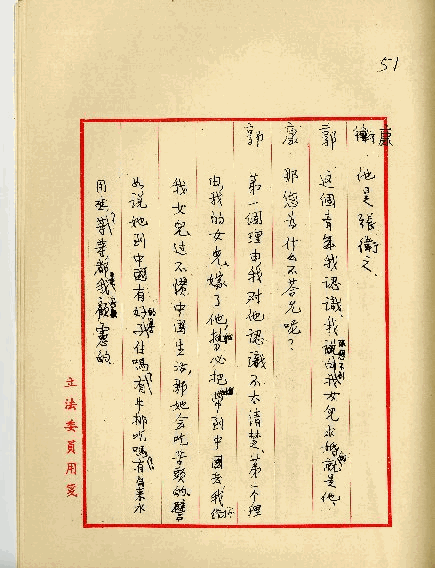 51
康
衛 他是張衛之、
郭 這個青年我認識我說向我女兒求婚就是他、
康 那您為什么不答允呢？
郭 第一個理由我對他認識不太清楚、第二个理
由我的女兒嫁了他担心把她帶到中國去我怕
我女兒过不慣中国生活那她会吃苦頭的、譬
如说她到中國有好的房子住嗎？有牛排吃嗎？有自来水
用嗎？等等都我顧慮的
立法委員用箋